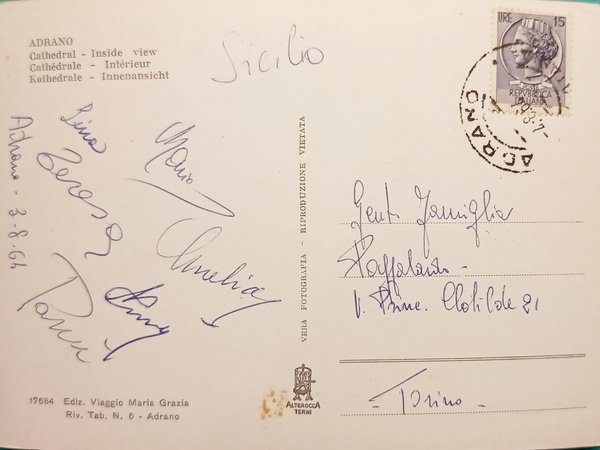 ADRANO
Cathedral - Inside view
Cathédrale - Intérieur
Kathedrale - Innenansicht
Sicilio
Maria
Teresa
Amelia
Adrano - 3-8-64
17684 Ediz. Viaggio Maria Grazia
Riv. Tab. N. 6 - Adrano
VERA FOTOGRAFIA - RIPRODUZIONE VIETATA
ALTEROCCA
TERNI
LIRE 15
REPUBBLICA
ITALIANA
ADRANO
Gent. Famiglia
V. Princ. Clotilde 21
- Torino -